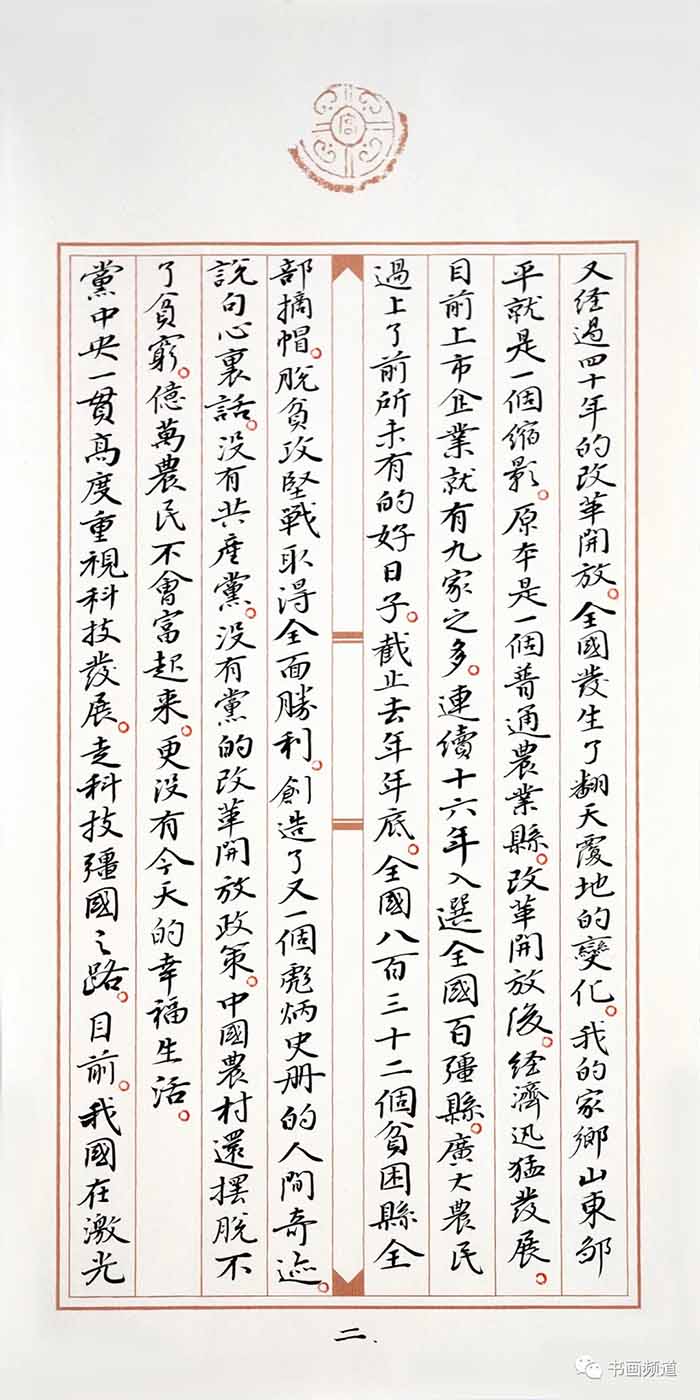 又经過四十年的改革開放。全國發生了翻天覆地的變化。我的家鄉山東邹
平就是一個缩影。原本是一個普通農業縣。改革開放後。经濟迅猛發展。
目前上市企業就有九家之多。連續十六年入選全國百彊縣。廣大農民
過上了前所未有的好日子。截止去年年底。全國八百三十二個貧困縣全
部摘帽。脱貧攻堅戰取得全面勝利。創造了又一個彪炳史册的人間奇迹。
説句心裏話。没有共産黨。没有黨的改革開放政策。中國農村還擺脱不
了貧窮。億萬農民不會富起来。更没有今天的幸福生活。
黨中央一貫高度重視科技發展。走科技彊國之路。目前。我國在激光
二.
书画频道